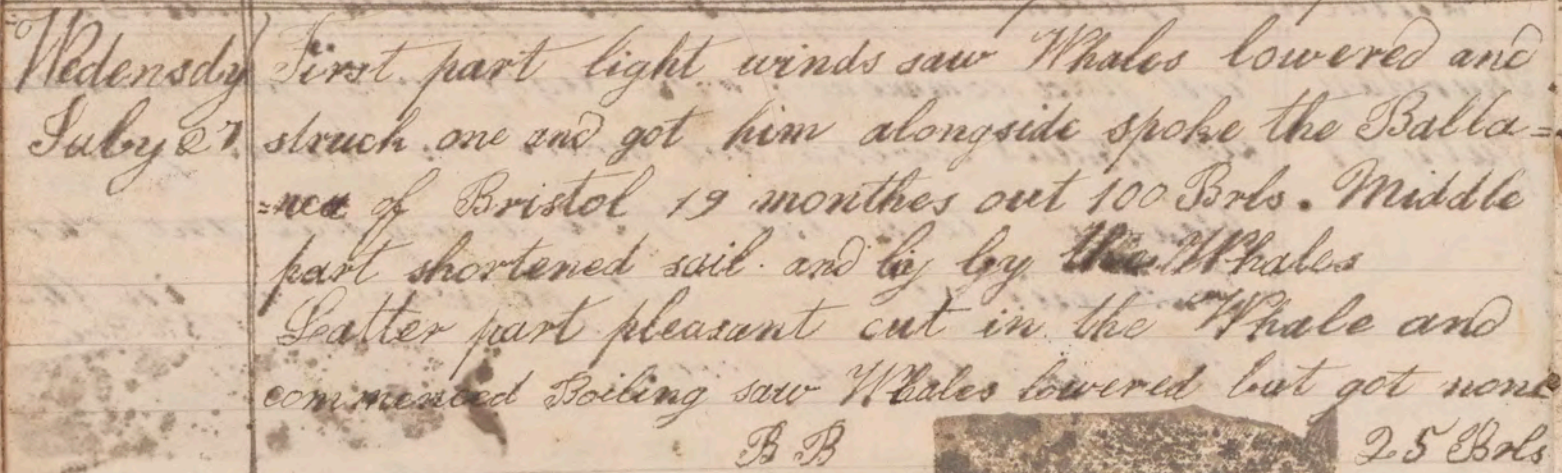 Wedensdy First part light winds saw Whales lowered and
July 27 struck one and got him alongside spoke the Balla=
=nce of Bristol 19 monthes out 100 Brls. Middle
part shortened sail and by the Whales
Latter part pleasant cut in the Whale and
commenced Boiling saw Whales lowered but got none
B B 25 Brls